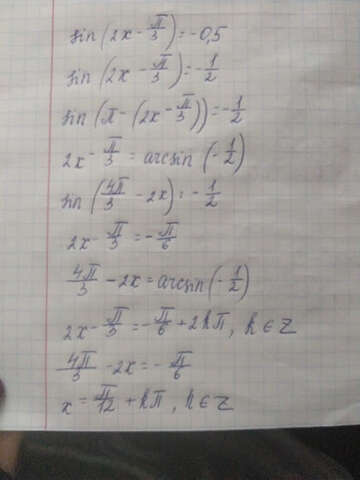 sin(2x - π/3) = -0,5
sin(2x - π/3) = -1/2
sin(π - (2x - π/3)) = -1/2
2x - π/3 = arcsin(-1/2)
sin(4π/3 - 2x) = -1/2
2x - π/3 = -π/6
4π/3 - 2x = arcsin(-1/2)
2x - π/3 = -π/6 + 2kπ, k ∈ Z
4π/3 - 2x = -π/6
x = π/12 + kπ, k ∈ Z